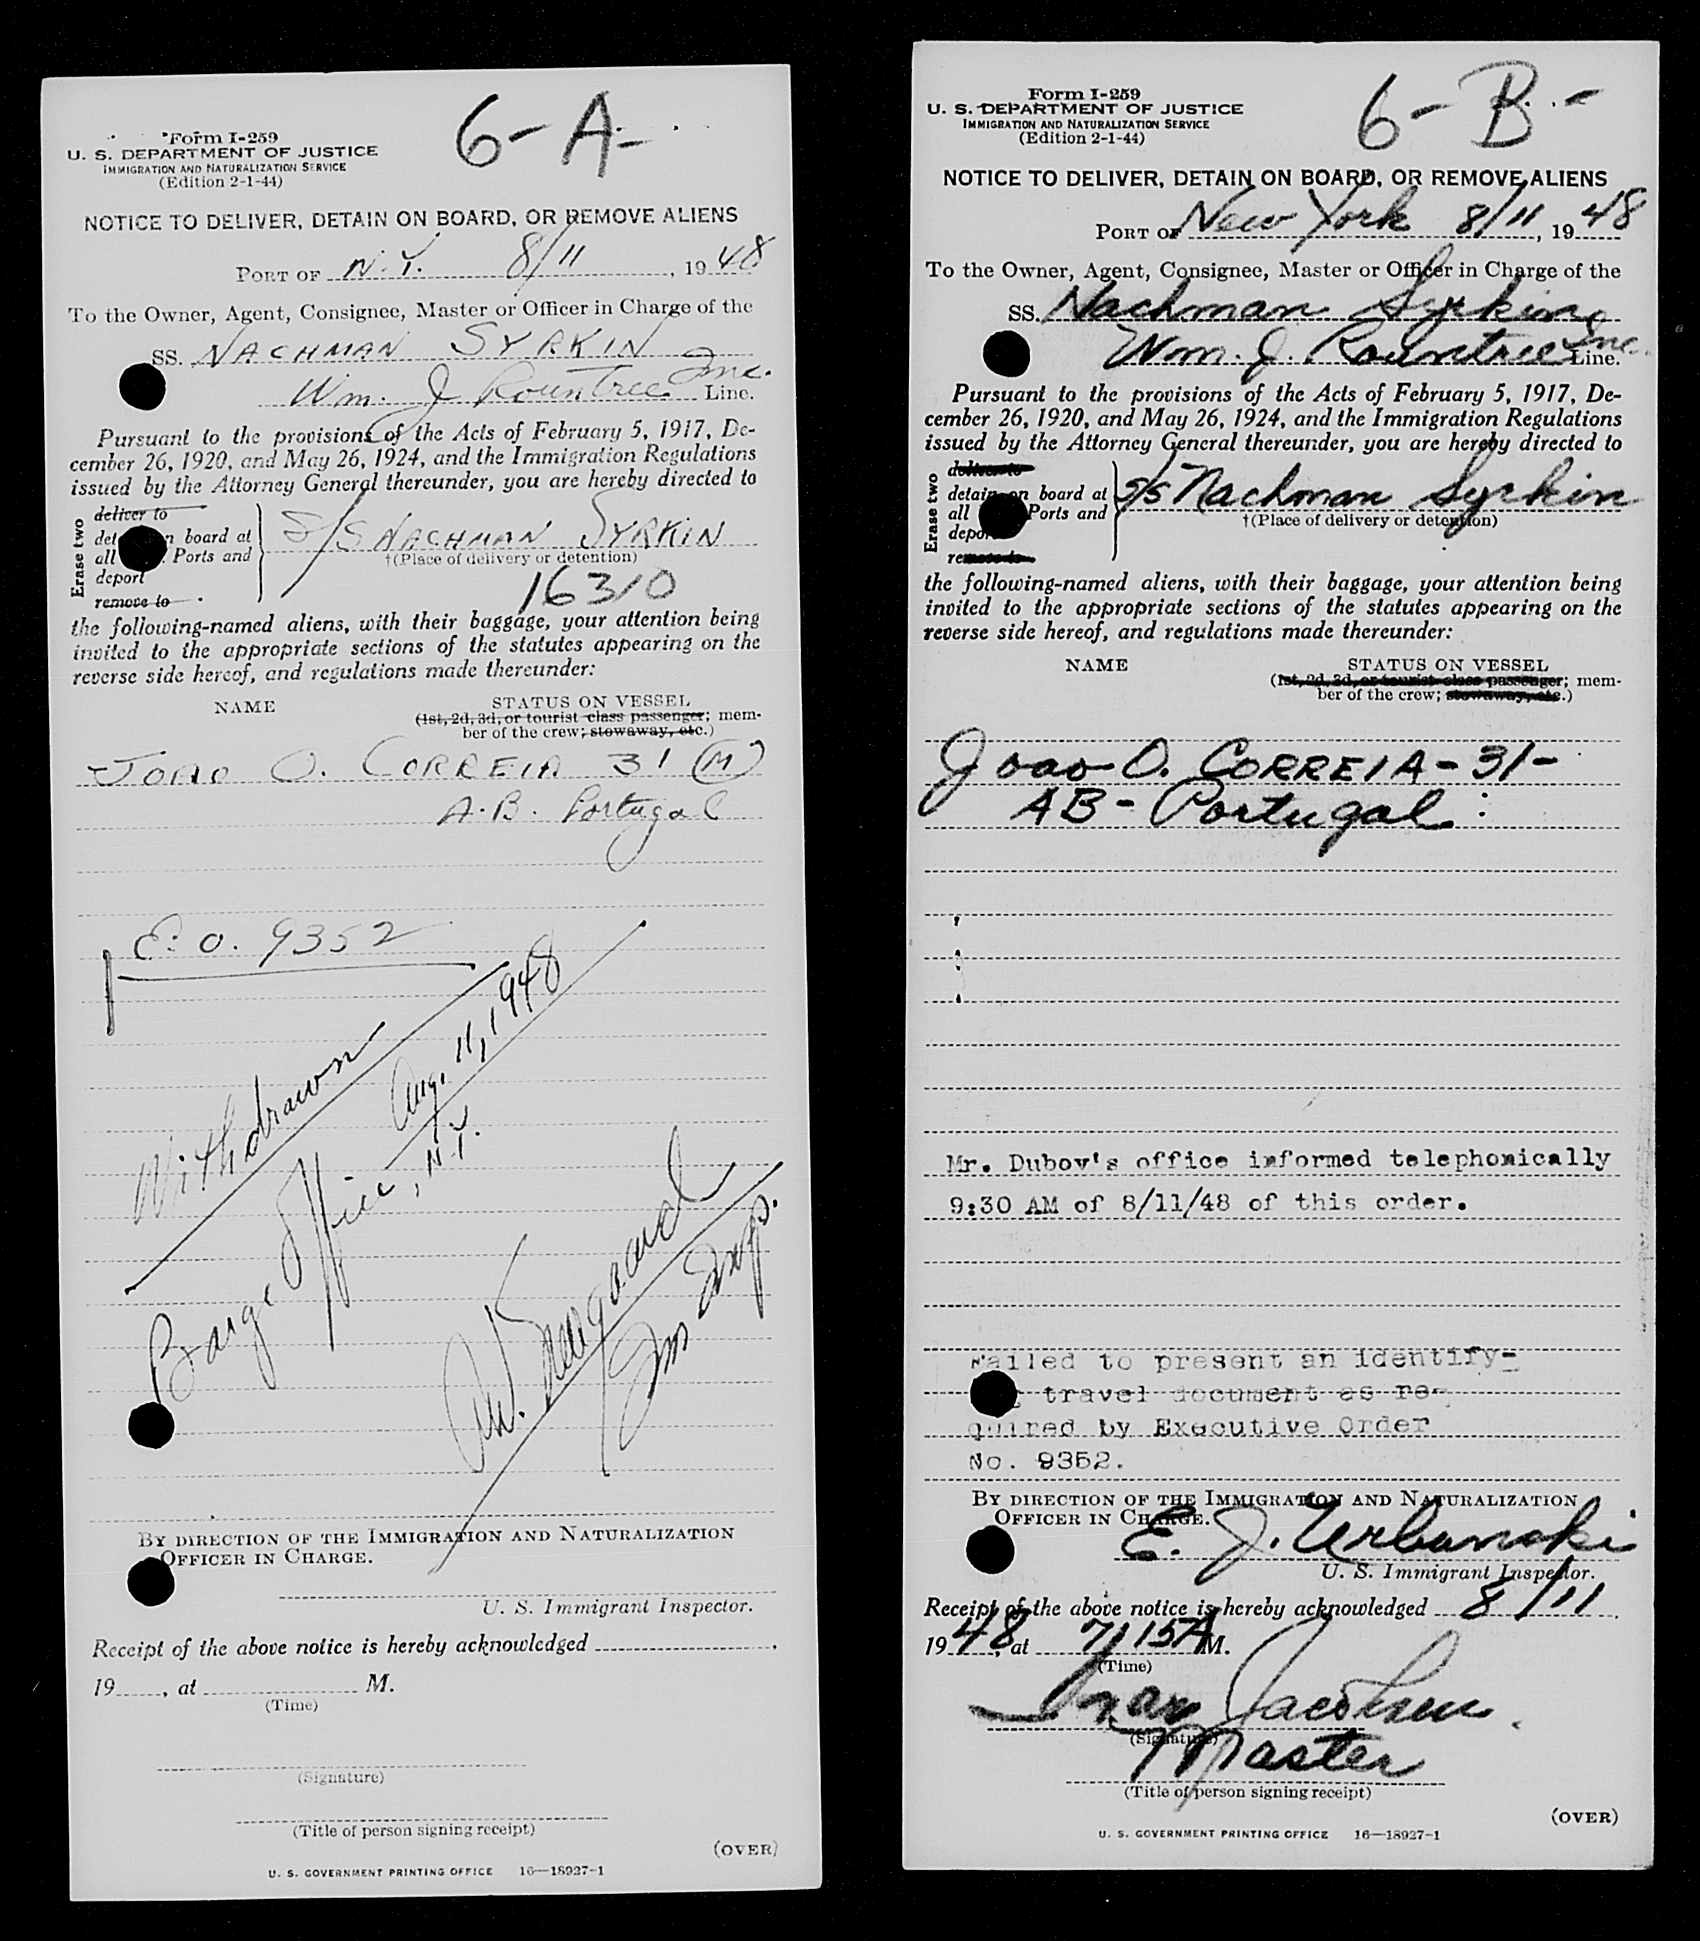 6-A-
Form I-259
U. S. DEPARTMENT OF JUSTICE
IMMIGRATION AND NATURALIZATION SERVICE
(Edition 2-1-44)
NOTICE TO DELIVER, DETAIN ON BOARD, OR REMOVE ALIENS
PORT OF N.Y. 8/11, 1948
To the Owner, Agent, Consignee, Master or Officer in Charge of the
SS. NACHMAN SYRKIN
Wm. J Rountree Inc. Line.
Pursuant to the provisions of the Acts of February 5, 1917, De-
cember 26, 1920, and May 26, 1924, and the Immigration Regulations
issued by the Attorney General thereunder, you are hereby directed to
Erase two
deliver to
board at
all Ports and
deport
remove to
S/S NACHMAN SYRKIN
†(Place of delivery or detention)
16310
the following-named aliens, with their baggage, your attention being
invited to the appropriate sections of the statutes appearing on the
reverse side hereof, and regulations made thereunder:
NAME STATUS ON VESSEL
(1st, 2d, 3d, or tourist class passenger; mem-
ber of the crew; stowaway, etc.)
JOAO O. CORREIA 31 (M)
A.B. Portugal
E.O. 9352
Withdrawn
Aug. 11, 1948
Barge Office, N.Y.
Ims Insp.
BY DIRECTION OF THE IMMIGRATION AND NATURALIZATION
OFFICER IN CHARGE.
U. S. Immigrant Inspector.
Receipt of the above notice is hereby acknowledged ,
19 , at M.
(Time)
(Signature)
(Title of person signing receipt)
(OVER)
U. S. GOVERNMENT PRINTING OFFICE 16—18927-1
6-B-
Form I-259
U. S. DEPARTMENT OF JUSTICE
IMMIGRATION AND NATURALIZATION SERVICE
(Edition 2-1-44)
NOTICE TO DELIVER, DETAIN ON BOARD, OR REMOVE ALIENS
PORT OF New York 8/11, 1948
To the Owner, Agent, Consignee, Master or Officer in Charge of the
SS. Nachman Syrkin
Wm. J. Rountree Inc. Line.
Pursuant to the provisions of the Acts of February 5, 1917, De-
cember 26, 1920, and May 26, 1924, and the Immigration Regulations
issued by the Attorney General thereunder, you are hereby directed to
Erase two
deliver to
detain on board at
all Ports and
remove to
S/S Nachman Syrkin
†(Place of delivery or detention)
the following-named aliens, with their baggage, your attention being
invited to the appropriate sections of the statutes appearing on the
reverse side hereof, and regulations made thereunder:
NAME STATUS ON VESSEL
(1st, 2d, 3d, or tourist class passenger; mem-
ber of the crew; stowaway, etc.)
Joao O. CORREIA - 31 -
AB - Portugal
Mr. Dubov's office informed telephonically
9:30 AM of 8/11/48 of this order.
Failed to present an identify-
travel document as re-
quired by Executive Order
No. 9352.
BY DIRECTION OF THE IMMIGRATION AND NATURALIZATION
OFFICER IN CHARGE.
E. J. Urbanski
U. S. Immigrant Inspector.
Receipt of the above notice is hereby acknowledged 8/11,
1948, at 7:15 A M.
(Time)
Jacobsen
(Signature)
Master
(Title of person signing receipt)
(OVER)
U. S. GOVERNMENT PRINTING OFFICE 16—18927-1